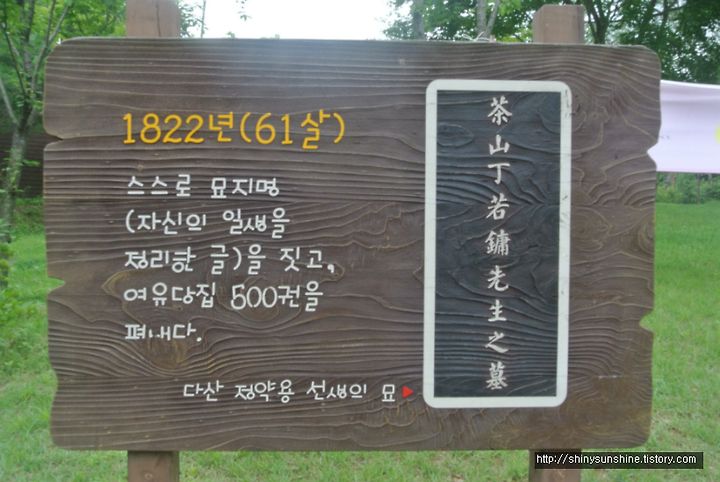 1822년(61살)
스스로 묘지명
(자신의 일생을
정리한 글)을 짓고,
여유당집 500권을
펴내다.
다산 정약용 선생의 묘▶
茶山丁若鏞先生之墓
http://shinysunshine.tistory.com